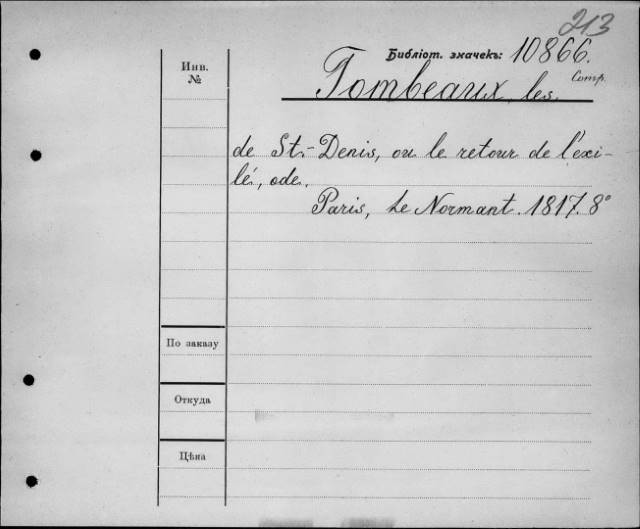 213
Библіот. значекъ: 10866.
Comp.
Инв.
№
Tombeaux, les
de St.-Denis, ou le retour de l'exi-
lé, ode.
Paris, Le Normant. 1817. 8°
По заказу
Откуда
Цѣна